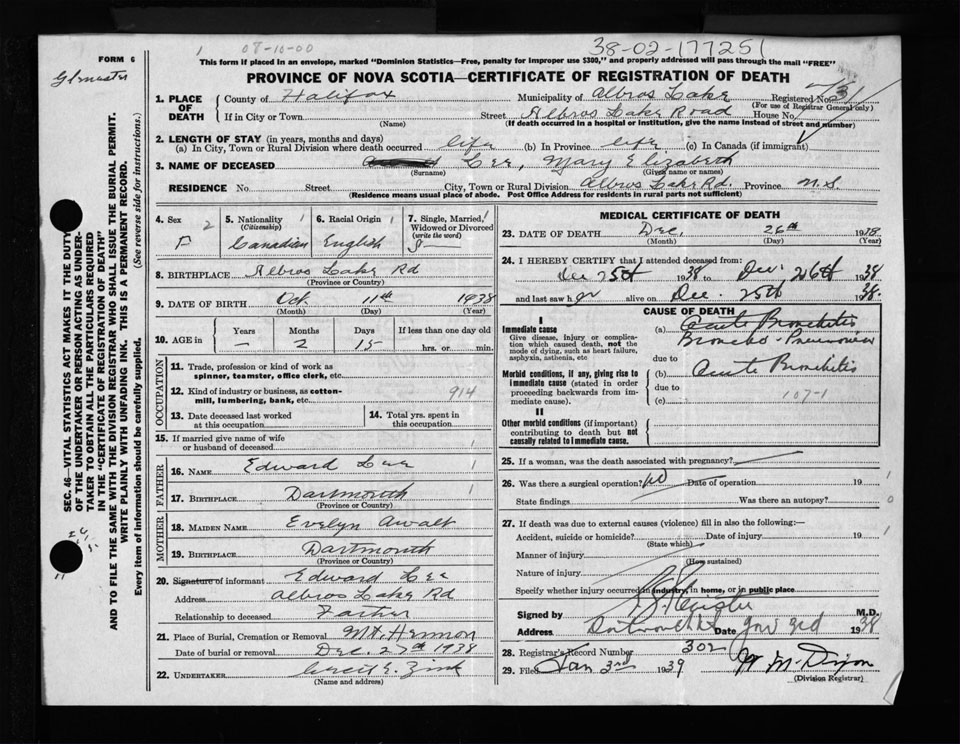 1 08-10-00 38-02-177251
FORM 6
This form if placed in an envelope, marked "Dominion Statistics—Free, penalty for improper use $300," and properly addressed will pass through the mail "FREE"
PROVINCE OF NOVA SCOTIA—CERTIFICATE OF REGISTRATION OF DEATH
SEC. 46—VITAL STATISTICS ACT MAKES IT THE DUTY
OF THE UNDERTAKER OR PERSON ACTING AS UNDER-
TAKER TO OBTAIN ALL THE PARTICULARS REQUIRED
IN THE "CERTIFICATE OF REGISTRATION OF DEATH"
AND TO FILE THE SAME WITH THE DIVISION REGISTRAR WHO SHALL ISSUE THE BURIAL PERMIT.
WRITE PLAINLY WITH UNFADING INK. THIS IS A PERMANENT RECORD.
Every item of information should be carefully supplied. (See reverse side for instructions).
1. PLACE OF DEATH
County of Halifax Municipality of Albros Lake Registered No. 31
(For use of Registrar General only)
If in City or Town Street Albros Lake Road House No.
(Name) (If death occurred in a hospital or institution, give the name instead of street and number)
2. LENGTH OF STAY (in years, months and days)
(a) In City, Town or Rural Division where death occurred life (b) In Province life (c) In Canada (if immigrant)
3. NAME OF DECEASED Lee, Mary Elizabeth
(Surname) (Given name or names)
RESIDENCE No. Street City, Town or Rural Division Albros Lake Rd. Province N.S.
(Residence means usual place of abode. Post Office Address for residents in rural parts not sufficient)
4. Sex 2 5. Nationality 1 6. Racial Origin 1 7. Single, Married, 1
(Citizenship) Widowed or Divorced
(write the word)
F Canadian English S
8. BIRTHPLACE Albros Lake Rd
(Province or Country)
9. DATE OF BIRTH Oct. 11th 1938
(Month) (Day) (Year)
10. AGE in Years Months Days If less than one day old
— 2 15 hrs. or min.
OCCUPATION
11. Trade, profession or kind of work as
spinner, teamster, office clerk, etc.
12. Kind of industry or business, as cotton-
mill, lumbering, bank, etc. 914
13. Date deceased last worked
at this occupation
14. Total yrs. spent in
this occupation
15. If married give name of wife
or husband of deceased 1
FATHER
16. NAME Edward Lee 1
17. BIRTHPLACE Dartmouth 1
(Province or Country)
MOTHER
18. MAIDEN NAME Evelyn Awalt
19. BIRTHPLACE Dartmouth
(Province or Country)
20. Signature of informant Edward Lee
Address Albros Lake Rd
Relationship to deceased Father
21. Place of Burial, Cremation or Removal Mt. Hermon
Date of burial or removal Dec. 27th 1938
22. UNDERTAKER Cecil E. Zink
(Name and address)
MEDICAL CERTIFICATE OF DEATH
23. DATE OF DEATH Dec. 26th 1938
(Month) (Day) (Year)
24. I HEREBY CERTIFY that I attended deceased from:
Dec 25th 1938 to Dec. 26th 1938
and last saw her alive on Dec. 25th 1938.
CAUSE OF DEATH
I
Immediate cause
Give disease, injury or complica-
tion which caused death, not the
mode of dying, such as heart failure,
asphyxia, asthenia, etc
(a) Acute Bronchitis
Broncho-Pneumonia
due to
Morbid conditions, if any, giving rise to
immediate cause (stated in order
proceeding backwards from im-
mediate cause).
(b) Acute Bronchitis
due to
(c) 107-1
II
Other morbid conditions (if important)
contributing to death but not
causally related to immediate cause.
25. If a woman, was the death associated with pregnancy?
26. Was there a surgical operation? No Date of operation 19 1
State findings Was there an autopsy? 0
27. If death was due to external causes (violence) fill in also the following:—
Accident, suicide or homicide? Date of injury 19 1
(State which)
Manner of injury
(How sustained)
Nature of injury
Specify whether injury occurred in industry, in home, or in public place
Signed by M.D.
Address Dartmouth Date Jan 3rd 1938
28. Registrar's Record Number 302
29. Filed Jan 3rd 1939
(Division Registrar)